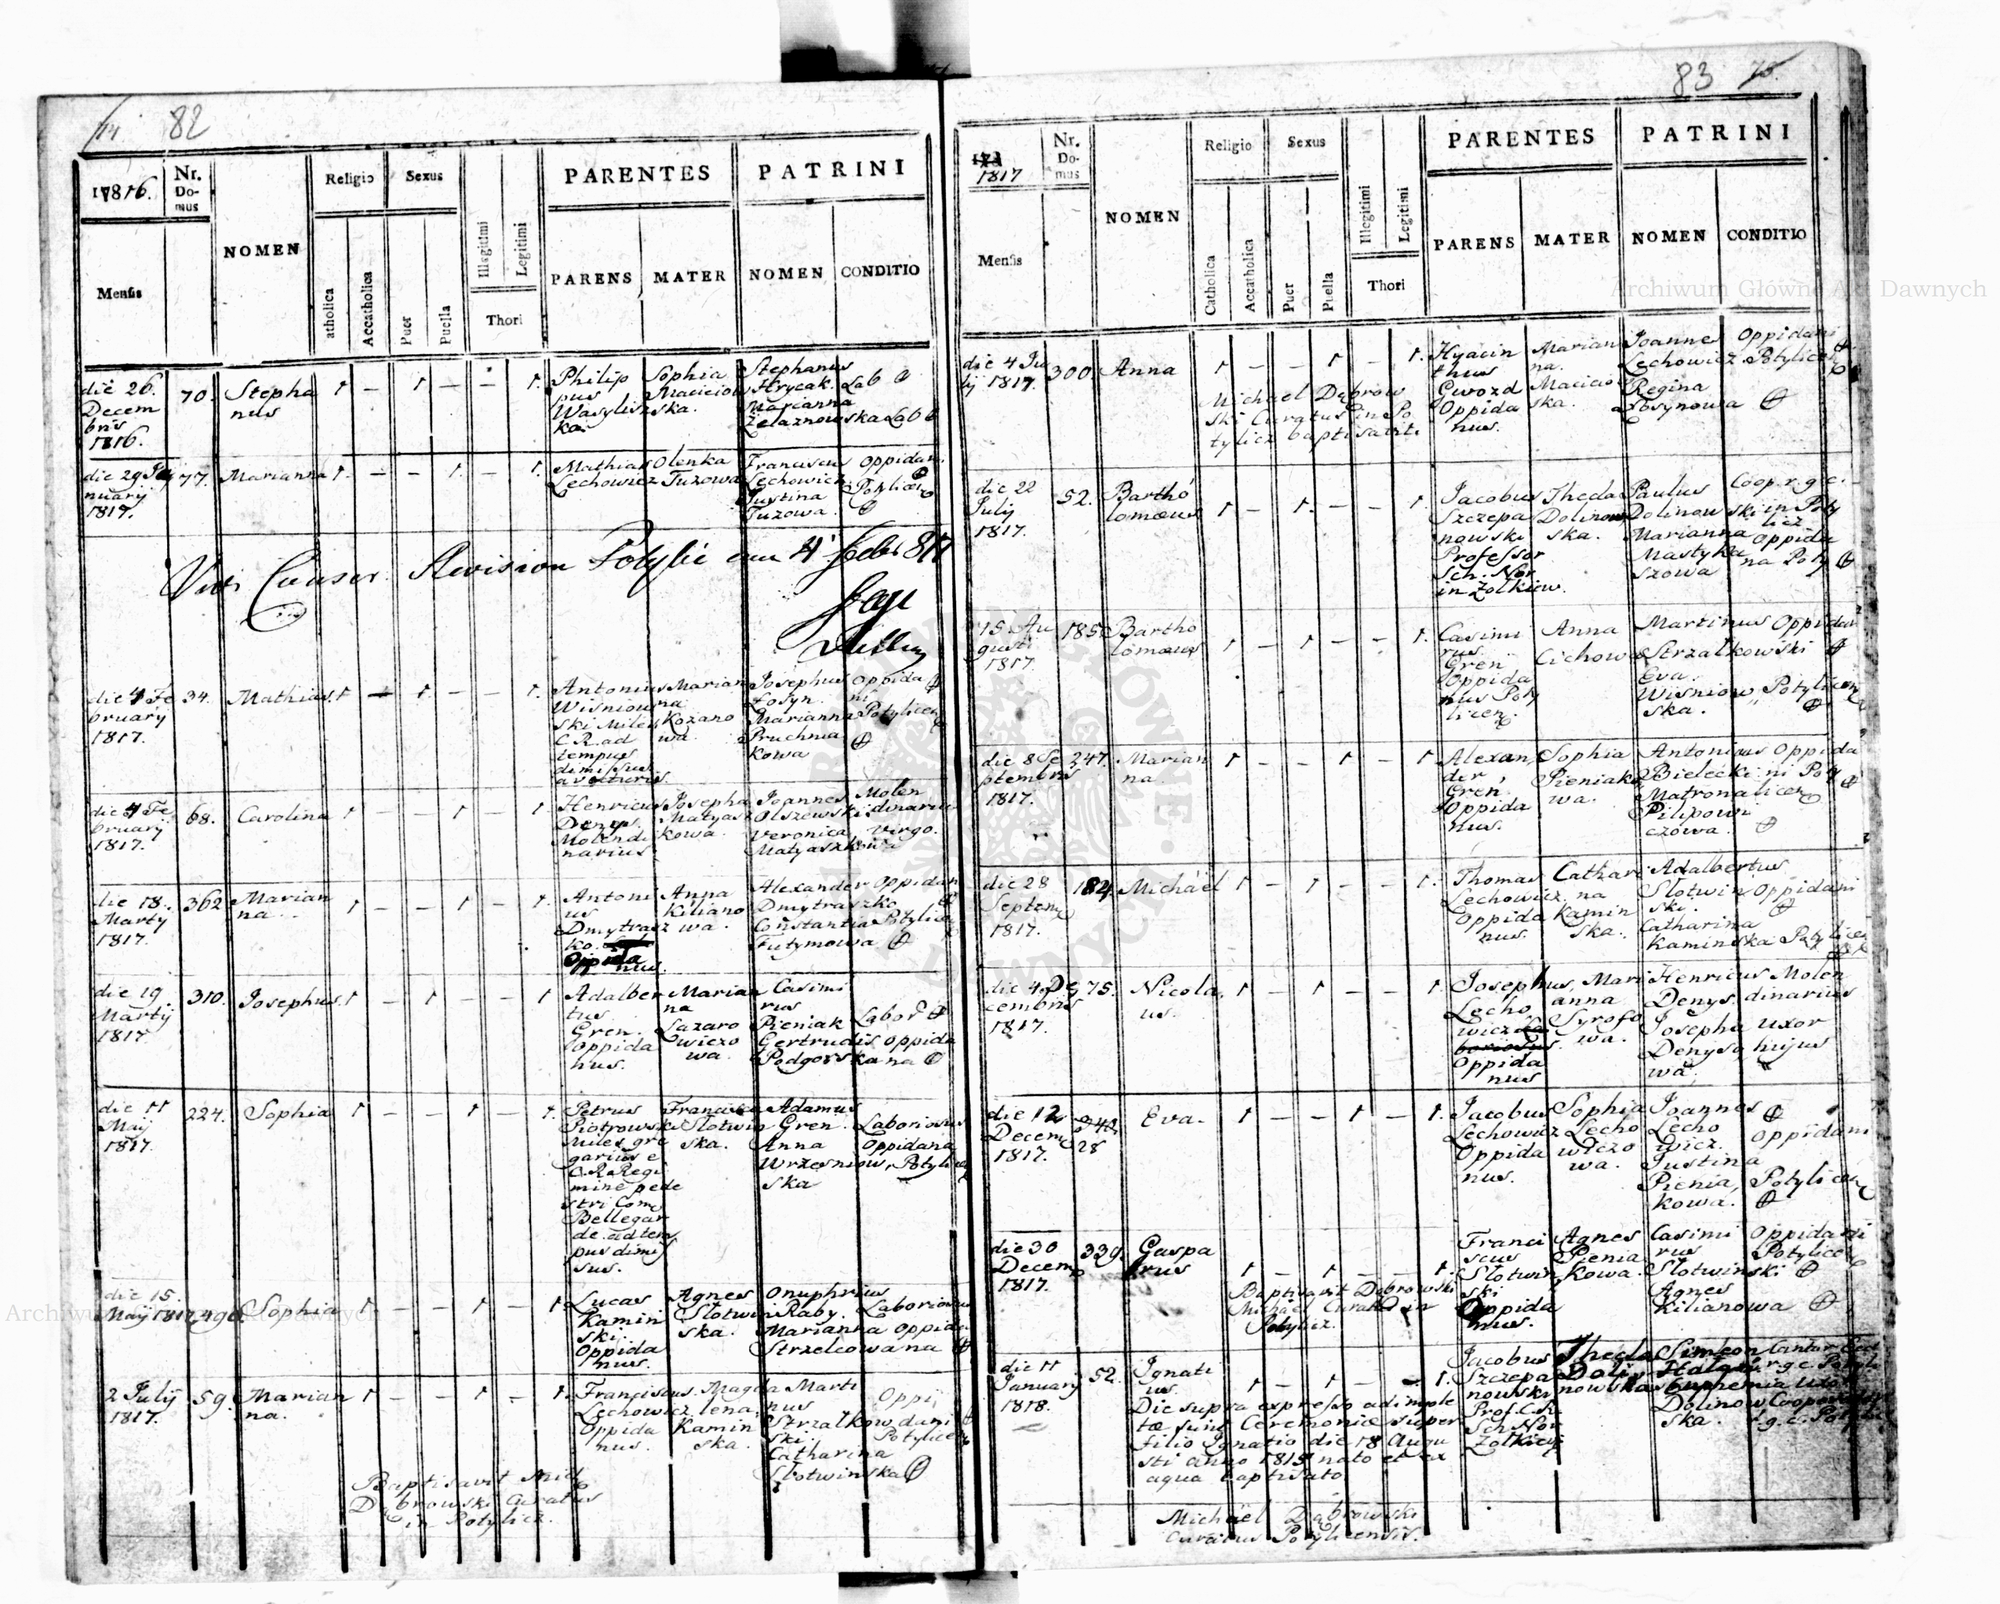 82
17816.
Nr. Domus
NOMEN
Religio
Sexus
Illegitimi
Legitimi
PARENTES
PATRINI
Mensis
atholica
Accatholica
Puer
Puella
Thori
PARENS
MATER
NOMEN
CONDITIO
die 26. Decembris 1816. 70. Stephanus 1 – 1 – – 1. Philippus Wasyliszka. Sophia Maciciowska. Stephanus Hrycak Lab Marianna Żelaznowska Lab
die 29 Januarij 1817. 77. Marianna 1. – – 1. – 1. Mathias Lechowicz Olenka Tuzowa Franciscus Lechowicz Justina Tuzowa. Oppidani Potylicz
Revision Potylie am 4 Feber 817
die 4 February 1817. 34. Mathias. 1 – 1 – – 1. Antonius Wisniowski Miles C.R. ad tempus dimissus Marianna Kozanowa. Josephus Łosyn. Marianna Pruchniakowa Oppidani Potylicen
die 4 February 1817. 68. Carolina 1 – – 1 – 1 Henricus Denys. Molendinarius. Josepha Matyaszkowa. Joannes Olszewski Veronica Matyaszkowa Molendinarius Virgo.
die 18. Marty 1817. 362 Marianna. 1 – – 1 – 1. Antonius Dmytraszko. Oppidanus. Anna Kilianowa. Alexander Dmytraszko Constantia Futymowa Oppidani Potylicen
die 19. Martij 1817. 310. Josephus. 1 – 1 – – 1 Adalbertus. Gren. Oppidanus. Marianna Lazarowiczowa. Casimirus Pieniak Gertrudis Podgorska Labor Oppidana
die 11 Maij 1817. 224. Sophia 1 – – 1 – 1. Petrus Piotrowski Miles gregarius e C.R. Regimine pedestri Com Bellegarde ad tempus dimissus. Francisca Slotwinska. Adamus Gren. Anna Wrzesniowska Laboriosus Oppidana Potylicen
die 15. Maij 1817 490. Sophia 1 – – 1 – 1. Lucas Kaminski. Oppidanus. Agnes Slotwinska. Onuphrius Raby. Marianna Strzelcowa Laboriosus Oppidana
2 Julij 1817. 59. Marianna. 1 – – 1 – 1. Franciscus. Lechowicz Oppidanus. Magdalena. Kaminska. Martinus Strzalkowski. Catharina Slotwinska Oppidani Potylicen
Baptisavit Mich Dąbrowski Curatus in Potylicz.
83 75.
1817
Nr. Domus
NOMEN
Religio
Sexus
Illegitimi
Legitimi
PARENTES
PATRINI
Mensis
Catholica
Accatholica
Puer
Puella
Thori
PARENS
MATER
NOMEN
CONDITIO
die 4 Julij 1817. 300. Anna 1 – – 1 – 1. Hyacinthus Gwozd Oppidanus. Marianna. Maciciowska. Joannes Lechowicz Regina Łosynowa Oppidani Potylicen
Michael Dąbrowski Curatus in Potylicz baptisavit
die 22 July 1817. 52. Bartholomæus 1 – 1. – – 1. Jacobus Szczepanowski Professor Sch: Nor in Zolkiew. Thecla Dolinowska. Paulus Dolinowski Marianna Mastykaszowa Coop. r.g.c. in Potylicz Oppidana Poty
15. Augusti 1817. 185. Bartholomæus 1 – 1 – – 1. Casimirus. Gren Oppidanus Potylicen. Anna Cichowa Martinus Strzalkowski Eva. Wisniowska. Oppidani Potylicen
die 8 Septembris 1817. 247. Marianna 1 – – 1 – 1 Alexander, Gren. Oppidanus. Sophia Pieniakowa. Antonius Bielecki Matrona Pilipowiczowa. Oppidani Potylicen
die 28 Septem 1817. 184. Michael 1 – 1 – – 1. Thomas Lechowicz Oppidanus. Catharina Kaminska. Adalbertus Slotwinski. Catharina Kaminska Oppidani Potylicen
die 4 Decembris 1817. 75. Nicolaus. 1 – 1 – – 1 Josephus, Lechowicz Oppidanus Marianna Syrofowa. Henricus Denys. Josepha Denysowa Molendinarius Uxor hujus
die 12 Decem 1817. 28 Eva. 1 – – 1 – 1. Jacobus Lechowicz Oppidanus. Sophia Lechowiczowa. Joannes Lechowicz. Justina Pieniakowa. Oppidani Potylicen
die 30 Decem 1817. 339. Gasparus 1 – 1 – – 1. Franciscus Slotwinski Oppidanus. Agnes Pieniakowa. Casimirus Slotwinski Agnes Kilianowa Oppidani Potylicen
Baptisavit Dąbrowski Michael Curatus in Potylicz.
die 11 January 1818. 52. Ignatius. 1 – 1 – – 1. Jacobus Szczepanowski Prof. Sch Nor Zolkiew Thecla Dolinowska Simeon Euphemia Dolinowska. Cantor r.g.c. Uxor Cooperatoris r.g.c.
Die supra expresso adimpletæ sunt Ceremoniæ super filio Ignatio die 18 Augusti anno 1815 nato et ex aqua baptisato
Michaël Dąbrowski Curatus Potylicensis.
Archiwum Główne Akt Dawnych
Archiwum Główne Akt Dawnych
ARCHIWUM GŁÓWNE AKT DAWNYCH